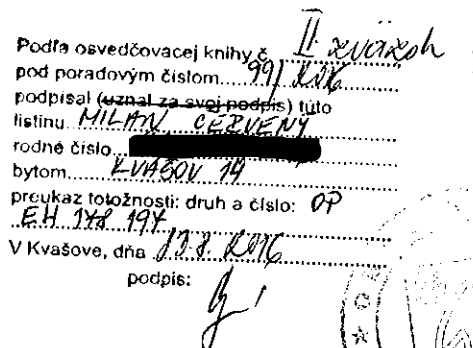 Podľa osvedčovacej knihy č. II zväzok
pod poradovým číslom.....99/2016
podpísal (uznal za svoj podpis) túto
listinu MILAN ČERVENÝ
rodné číslo
bytom KVAŠOV 19
preukaz totožnosti: druh a číslo: OP
EH 148 194
V Kvašove, dňa 13.8.2016
podpis: